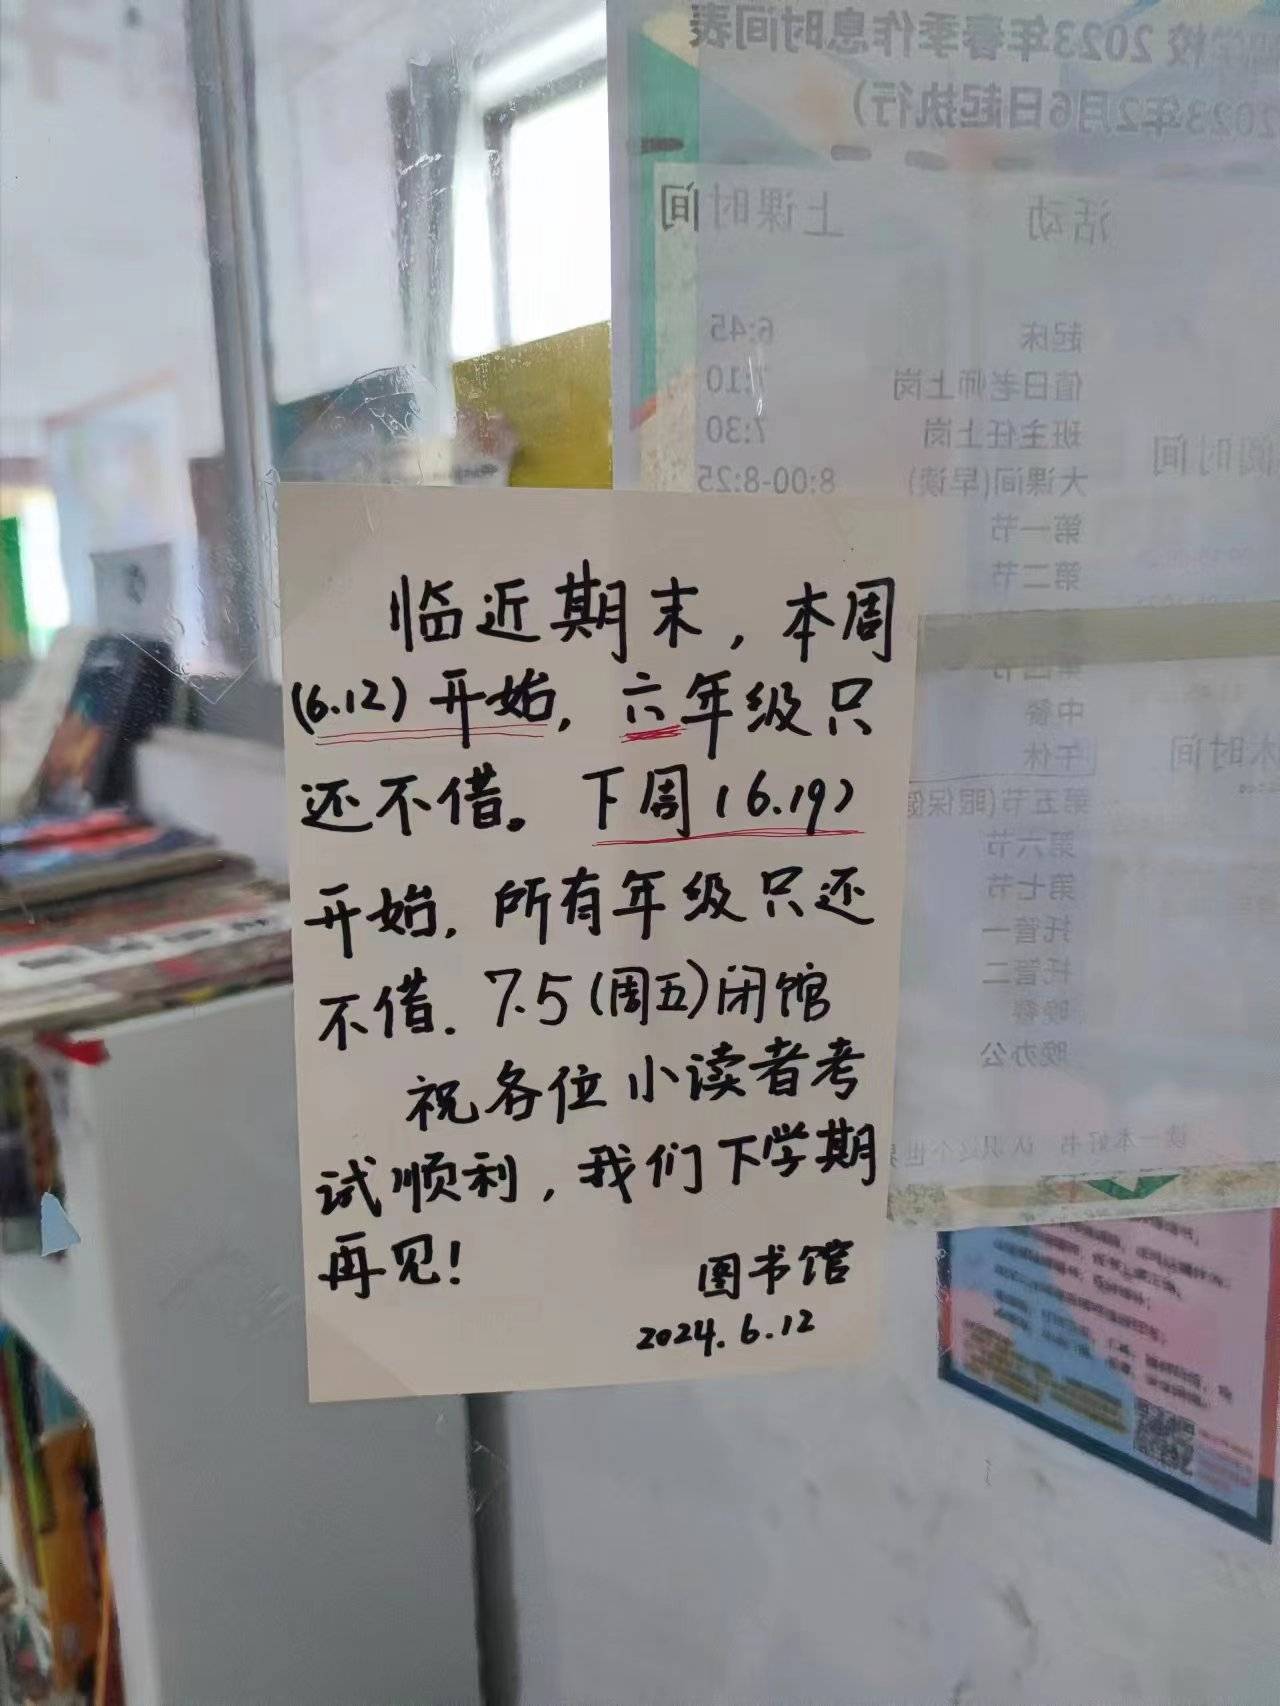 临近期末，本周
(6.12)开始，六年级只
还不借。下周(6.19)
开始，所有年级只还
不借．7.5(周五)闭馆
祝各位小读者考
试顺利，我们下学期
再见！
图书馆
2024.6.12
学校 2023年春季作息时间表
2023年2月6日起执行）
活动 上课时间
起床 6:45
值日老师上岗 7:10
班主任上岗 7:30
大课间(早读) 8:00-8:25
第一节
第二节
第四节
中餐
午休
第五节(眼保健
第六节
第七节
托管一
托管二
晚餐
晚办公
读一本好书 认识这个世界